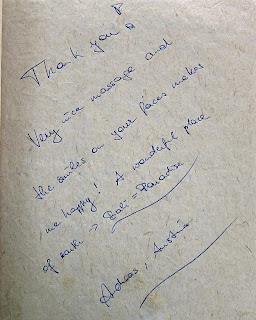 Thank you!
Very nice massage and
the smiles on your faces makes
me happy! A wonderful place
of earth → Bali = Paradise
Andreas, Austria